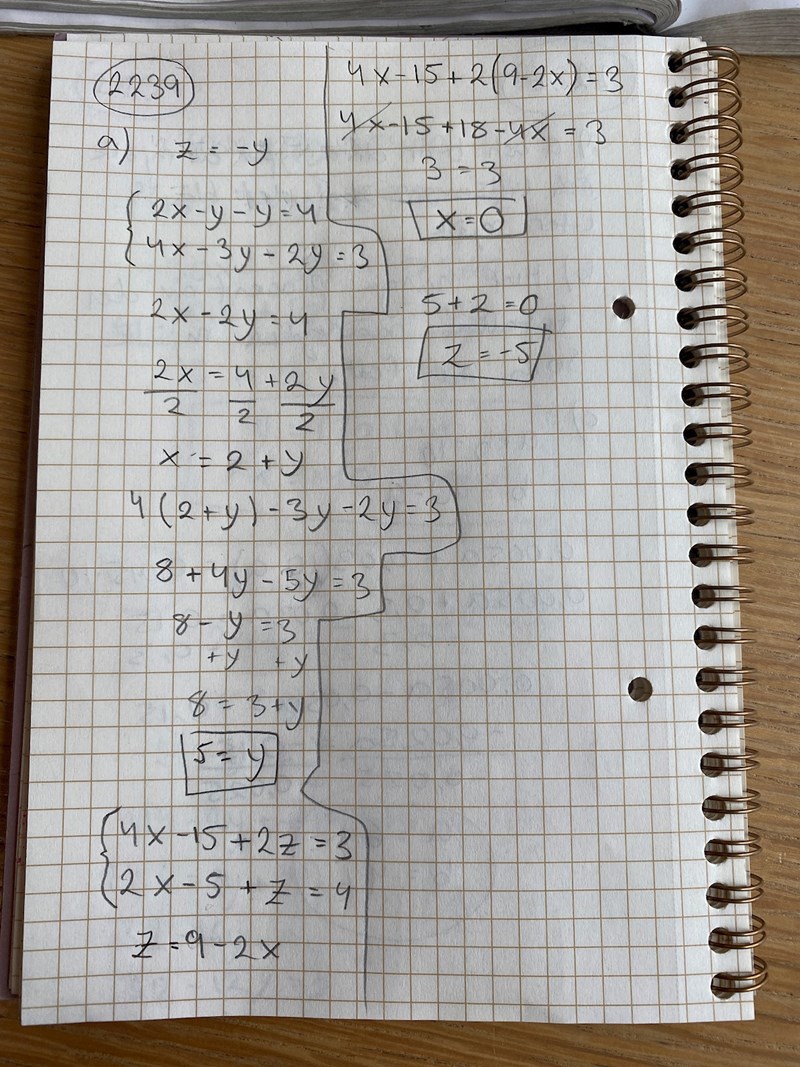 2239
a) z = -y
2x-y-y=4
4x-3y-2y=3
2x-2y=4
2x/2 = 4/2 + 2y/2
x = 2 + y
4(2+y)-3y-2y=3
8+4y-5y=3
8-y=3
+y +y
8=3+y
5=y
4x-15+2z=3
2x-5+z=4
z=9-2x
4x-15+2(9-2x)=3
4x-15+18-4x=3
3=3
x=0
5+z=0
z=-5